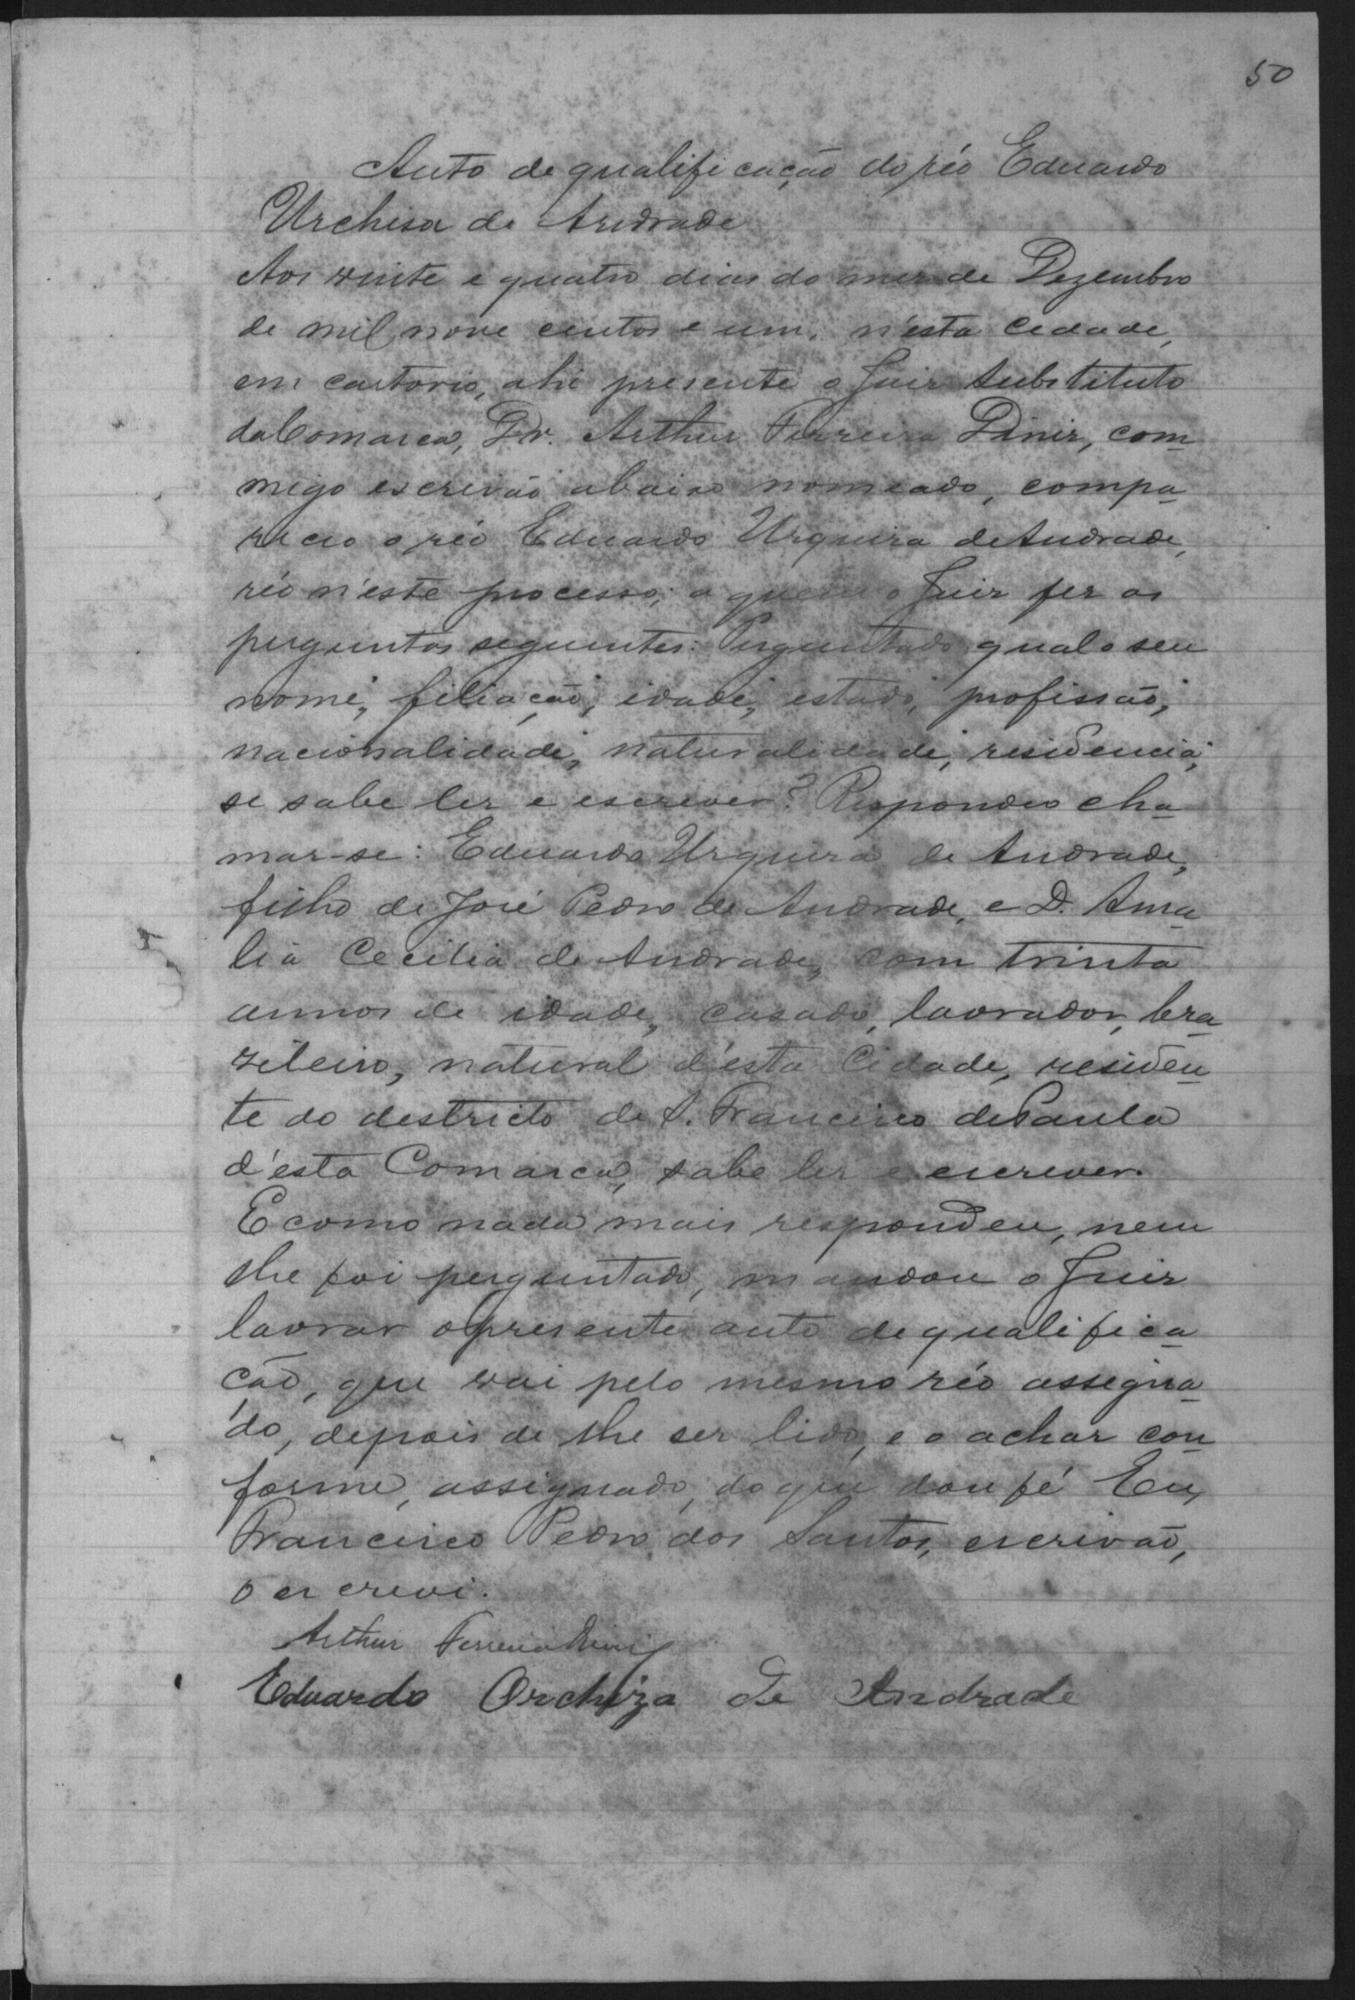 50
Auto de qualificação do réo Eduardo
Urchisa de Andrade
Aos vinte e quatro dias do mez de Dezembro
de mil nove centos e um, n'esta Cidade,
em cartorio, ahi presente o Juiz Substituto
da Comarca, Dr. Arthur Ferreira Diniz, com
migo escrivão abaixo nomeado, compa
receo o réo Eduardo Urquiza de Andrade,
réo n'este processo; a quem o Juiz fez as
perguntas seguintes: Perguntado qual o seu
nome, filiação, idade, estado, profissão,
nacionalidade, naturalidade, residencia,
se sabe ler e escrever? Respondeo cha
mar-se: Eduardo Urquiza de Andrade,
filho de José Pedro de Andrade, e D. Ama
lia Cecilia de Andrade, com trinta
annos de idade, casado, lavrador, bra
zileiro, natural d'esta Cidade, residen
te do destricto de S. Francisco de Paula
d'esta Comarca, sabe ler e escrever.
E como nada mais respondeu, nem
lhe foi perguntado, mandou o Juiz
lavrar o presente auto de qualifica
ção, que vai pelo mesmo réo assigna
do, depois de lhe ser lido, e o achar con
forme, assignado, do que dou fé Eu,
Francisco Pedro dos Santos, escrivão,
o escrevi.
Arthur Ferreira Diniz
Eduardo Orchiza de Andrade